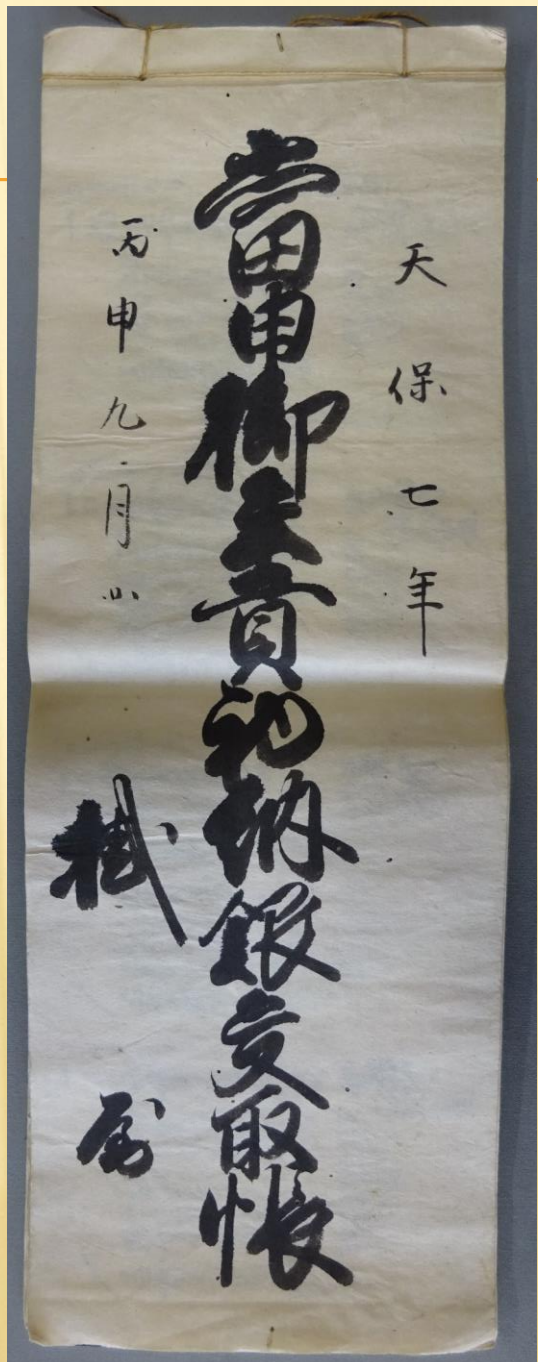 天保七年
當申御年貢初納銀受取帳
丙申九月
掛屋